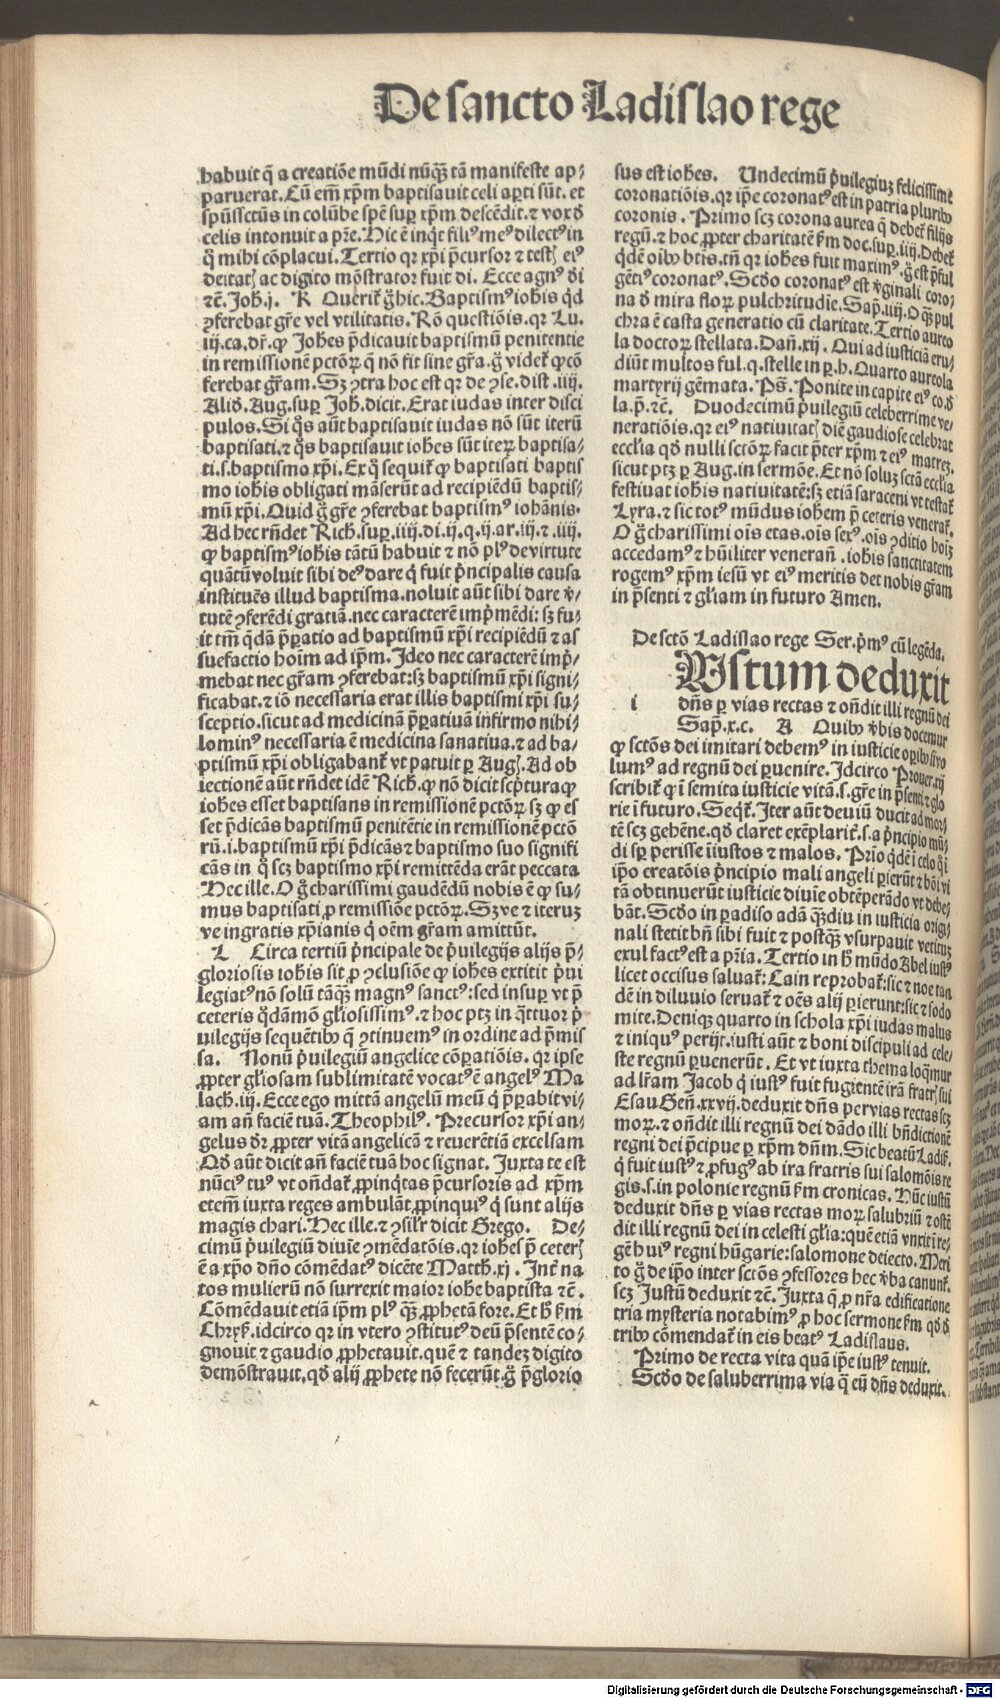 De sancto Ladislao rege
habuit q̃ a creatiõe mũdi nũq̃ꝫ tã manifeste ap⸗
paruerat. Cũ em̃ xp̃m baptisauit celi aꝑti sũt. et
spũssctũs in colũbe spẽ suꝑ xp̃m descẽdit. ⁊ vox ď
celis intonuit a pr̃e. Hic ẽ inq̃t filiꝰ meꝰ dilectꝰ in
q̃ mihi cõplacui. Tertio qꝛ xp̃i p̃cursor ⁊ testꝭ eiꝰ
deitatꝭ ac digito mõstrator fuit di. Ecce agnꝰ di
⁊c̃. Joh̃.j. K Querit̃ g̃ hic. Baptismꝰ iohis q̃d
ꝯferebat gr̃e vel vtilitatis. Rõ questiõis. qꝛ Lu.
iij.ca.dr̃. ꝙ Joh̃es p̃dicauit baptismũ penitentie
in remissionẽ pctõꝝ q̃ nõ fit sine gr̃a. g̃ videt̃ ꝙ cõ
ferebat gr̃am. Sꝫ ꝯtra hoc est qꝛ de ꝯse. dist .iiij.
Aliď. Aug. suꝑ Joh̃. dicit. Erat iudas inter disci
pulos. Si q̃s aũt baptisauit iudas nõ sũt iterũ
baptisati. ⁊ q̃s baptisauit ioh̃es sũt iteꝝ baptisa⸗
ti. s. baptismo xp̃i. Ex q̃ sequit̃ ꝙ baptisati baptis
mo ioh̃is obligati mãserũt ad recipiẽdũ baptis⸗
mũ xp̃i. Quid g̃ gr̃e ꝯferebat baptismꝰ iohãnis.
Ad hec rñdet Rich. suꝑ. iiij. di. ij. q. ij. ar. iij. ⁊ .iiij.
ꝙ baptismꝰ ioh̃is tãtũ habuit ⁊ nõ plꝰ de virtute
quãtũ voluit sibi deꝰ dare q̃ fuit p̃ncipalis causa
instituẽs illud baptisma. noluit aũt sibi dare v̾⸗
tutẽ ꝯferẽdi gratiã. nec caracterẽ imp̃mẽdi: sꝫ fu⸗
it tm̃ q̃dã p̃ꝑatio ad baptismũ xp̃i recipiẽdũ ⁊ as
suefactio hoim̃ ad ip̃m. Ideo nec caracterẽ imp̃⸗
mebat nec gr̃am ꝯferebat: sꝫ baptismũ xp̃i signi⸗
ficabat. ⁊ iõ necessaria erat illis baptismi xp̃i su⸗
sceptio. sicut ad medicinã p̃ꝑatiuã infirmo nihi⸗
lominꝰ necessaria ẽ medicina sanatiua. ⁊ ad ba⸗
ptismũ xp̃i obligabant̃ vt patuit ꝑ Augꝭ. Ad ob
iectionẽ aũt rñdet idẽ Rich. ꝙ nõ dicit scp̃tura ꝙ
ioh̃es esset baptisans in remissionẽ pctõꝝ sꝫ ꝙ es
set p̃dicãs baptismũ penitẽtie in remissionẽ pctõ
rũ. i. baptismũ xp̃i p̃dicãs ⁊ baptismo suo signifi
cãs in q̃ scꝫ baptismo xp̃i remittẽda erãt peccata
Hec ille. O g̃ charissimi gaudẽdũ nobis ẽ ꝙ su⸗
mus baptisati ꝓ remissiõe pctõꝝ. Sꝫ ve ⁊ iteruꝫ
ve ingratis xp̃ianis q̃ oẽm gr̃am amittũt.
L Circa tertiũ p̃ncipale de p̃uilegijs alijs p̃⸗
gloriosis ioh̃is sit ꝓ ꝯclusiõe ꝙ ioh̃es extitit p̃ui
legiatꝰ nõ solũ tãq̃ꝫ magnꝰ sanctꝰ: sed insuꝑ vt p̃
ceteris q̃dãmõ gl̃iosissimꝰ. ⁊ hoc ptꝫ in q̃ttuor p̃
uilegijs sequẽtibꝰ q̃ ꝯtinuemꝰ in ordine ad p̃mis
sa. Nonũ p̃uilegiũ angelice cõꝑatiõis. qꝛ ipse
ꝓpter gl̃iosam sublimitatẽ vocatꝰ ẽ angelꝰ Ma
lach. iij. Ecce ego mittã angelũ meũ q̃ p̃ꝑabit vi⸗
am añ faciẽ tuã. Theophilꝰ. Precursor xp̃i an⸗
gelus dr̃. ꝓpter vitã angelicã ⁊ reuerẽtiã excelsam
Qď aũt dicit añ faciẽ tuã hoc signat. Juxta te est
nũciꝰ tuꝰ vt oñdat̃. ꝓpinq̃tas p̃cursoris ad xp̃m
etem̃ iuxta reges ambulãt. ꝓpinquiꝰ q̃ sunt alijs
magis chari. Hec ille. ⁊ ꝯsil̃r dicit Grego. De⸗
cimũ p̃uilegiũ diuie ꝯmẽdatõis. qꝛ ioh̃es p̃ ceterꝭ
ẽ a xp̃o dño cõmẽdatꝰ dicẽte Matth. xj. Int̃ na
tos mulierũ nõ surrexit maior ioh̃e baptista ⁊c̃.
Cõmẽdauit etiã ip̃m plꝰ q̃ꝫ. ꝓphetã fore. Et h̃ ẜm
Chryẜ. idcirco qꝛ in vtero ꝯstitutꝰ deũ p̃sentẽ co⸗
gnouit ⁊ gaudio. ꝓphetauit. quẽ ⁊ tandeꝫ digito
demõstrauit. qď alij. ꝓphete nõ fecerũt. g̃ p̃glorio
sus est ioh̃es. Undecimũ p̃uilegiuꝫ felicissime
coronatiõis. qꝛ ip̃e coronatꝰ est in patria pluribꝰ
coronis. Primo scꝫ corona aurea q̃ debet̃ filijs
regũ. ⁊ hoc. ꝓpter charitatẽ ẜm doc. suꝑ. iiij. Debet̃
q̃dẽ oĩbꝰ btĩs. tñ qꝛ ioh̃es fuit maximꝰ. g̃ est p̃ful
gẽtiꝰ coronatꝰ. Scďo coronatꝰ est v̾ginali coro⸗
na ď mira floꝝ pulchritudĩe. Sap̃. iiij. O q̃ꝫ pul
chra ẽ casta generatio cũ claritate. Tertio aureo
la doctoꝝ stellata. Dañ. xij. Qui ad iusticiã eru⸗
diũt multos ful. q. stelle in ꝑ. h. Quarto aureola
martyrij gẽmata. Ps̃. Ponite in capite eiꝰ co. ď
la. p̃. ⁊c̃. Duodecimũ p̃uilegiũ celeberrime ve⸗
neratiõis. qꝛ eiꝰ natiuitatꝭ diẽ gaudiose celebrat
ecclĩa qď nulli sctõꝝ facit p̃ter xp̃m ⁊ eiꝰ matreꝫ.
sicut ptꝫ ꝑ Aug. in sermõe. Et nõ soluꝫ sctã ecclĩa
festiuat ioh̃is natiuitatẽ: sꝫ etiã saraceni vt testat̃
Lyra. ⁊ sic totꝰ mũdus ioh̃em p̃ ceteris venerat̃.
O g̃ charissimi oĩs etas. oĩs sexꝰ. oĩs ꝯditio hoĩꝫ
accedamꝰ ⁊ hũiliter venerañ. ioh̃is sanctitatem
rogemꝰ xp̃m iesũ vt eiꝰ meritis det nobis gr̃am
in p̃senti ⁊ gl̃iam in futuro Amen.
De sctõ Ladislao rege Ser. p̃mꝰ cũ legẽda.
i
Ustum deduxit
dñs ꝑ vias rectas ⁊ oñdit illi regnũ dei
Sap̃. x. c. A Quibꝰ v̾bis docemur
ꝙ sctõs dei imitari debemꝰ in iusticie oꝑibꝰ si vo
lumꝰ ad regnũ dei ꝑuenire. Idcirco Prouer. xij
scribit̃ ꝙ ĩ semita iusticie vitã. s. gr̃e in p̃senti ⁊ glo
rie ĩ futuro. Seqt̃. Iter aũt deuiũ ducit ad mor⸗
tẽ scꝫ gehẽne. qď claret exẽplarit̃. s. a p̃ncipio mũ⸗
di sꝑ perisse ĩiustos ⁊ malos. Prĩo q̃dẽ ĩ celo q̃ ĩ
ip̃o creatõis p̃ncipio mali angeli ꝑierũt ⁊ bõi vi
tã obtinuerũt iusticie diuĩe obtẽperãdo vt debe⸗
bãt. Scďo in ꝑadiso adã q̃ꝫdiu in iusticia origi⸗
nali stetit bñ sibi fuit ⁊ postq̃ꝫ vsurpauit vetituꝫ
exul factꝰ est a pr̃ia. Tertio in h̃ mũdo Abel iustꝰ
licet occisus saluat̃: Cain reprobat̃: sic ⁊ noe tan
dẽ in diluuio seruat̃ ⁊ oẽs alij ꝑierunt: sic ⁊ sodo
mite. Deniqꝫ quarto in schola xp̃i iudas malus
⁊ iniquꝰ perijt. iusti aũt ⁊ boni discipuli ad cele⸗
ste regnũ ꝑuenerũt. Et vt iuxta thema loq̃mur
ad lr̃am Jacob q̃ iustꝰ fuit fugientẽ irã fratrꝭ sui
Esau Geñ. xxvij. deduxit dñs per vias rectas scꝫ
moꝝ. ⁊ oñdit illi regnũ dei dãdo illi bñdictionẽ
regni dei p̃cipue ꝑ xp̃m dñm. Sic beatũ Ladiẜ.
q̃ fuit iustꝰ ⁊ ꝓfugꝰ ab ira fratris sui salomõis re
gis. s. in polonie regnũ ẜm cronicas. Hũc iustũ
deduxit dñs ꝑ vias rectas moꝝ salubriũ ⁊ ostẽ
dit illi regnũ dei in celesti gl̃ia: quẽ etiã vnxit ĩ re⸗
gẽ huiꝰ regni hũgarie: salomone deiecto. Meri
to g̃ de ip̃o inter sctõs ꝯfessores hec v̾ba canunt̃.
scꝫ Justũ deduxit ⁊c̃. Juxta q̃ ꝓ nr̃a edificatione
tria mysteria notabimꝰ ꝓ hoc sermone ẜm qď ď
tribꝰ cõmendat̃ in eis beatꝰ Ladislaus.
Primo de recta vita quã ip̃e iustꝰ tenuit.
Scďo de saluberrima via q̃ eũ dñs deduxit.
Digitalisierung gefördert durch die Deutsche Forschungsgemeinschaft - DFG